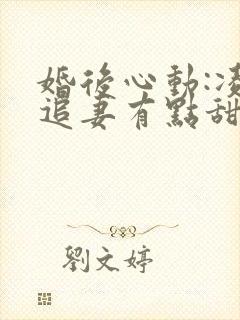 婚後心動:凌
追妻有點甜
劉文婷